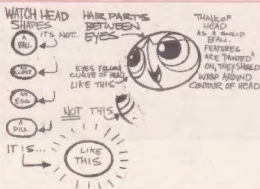 WATCH HEAD
SHAPES
IT'S NOT...
A
BALL
AN
EGG
A
PILL
IT IS...
LIKE
THIS
HAIR PARTS
BETWEEN
EYES
EYES FOLLOW
CURVE OF HEAD
LIKE THIS
NOT THIS
THINK OF
HEAD
AS A SOLID
BALL.
FEATURES
ARE "PAINTED"
ON, THEY SHOULD
WRAP AROUND
CONTOUR OF HEAD